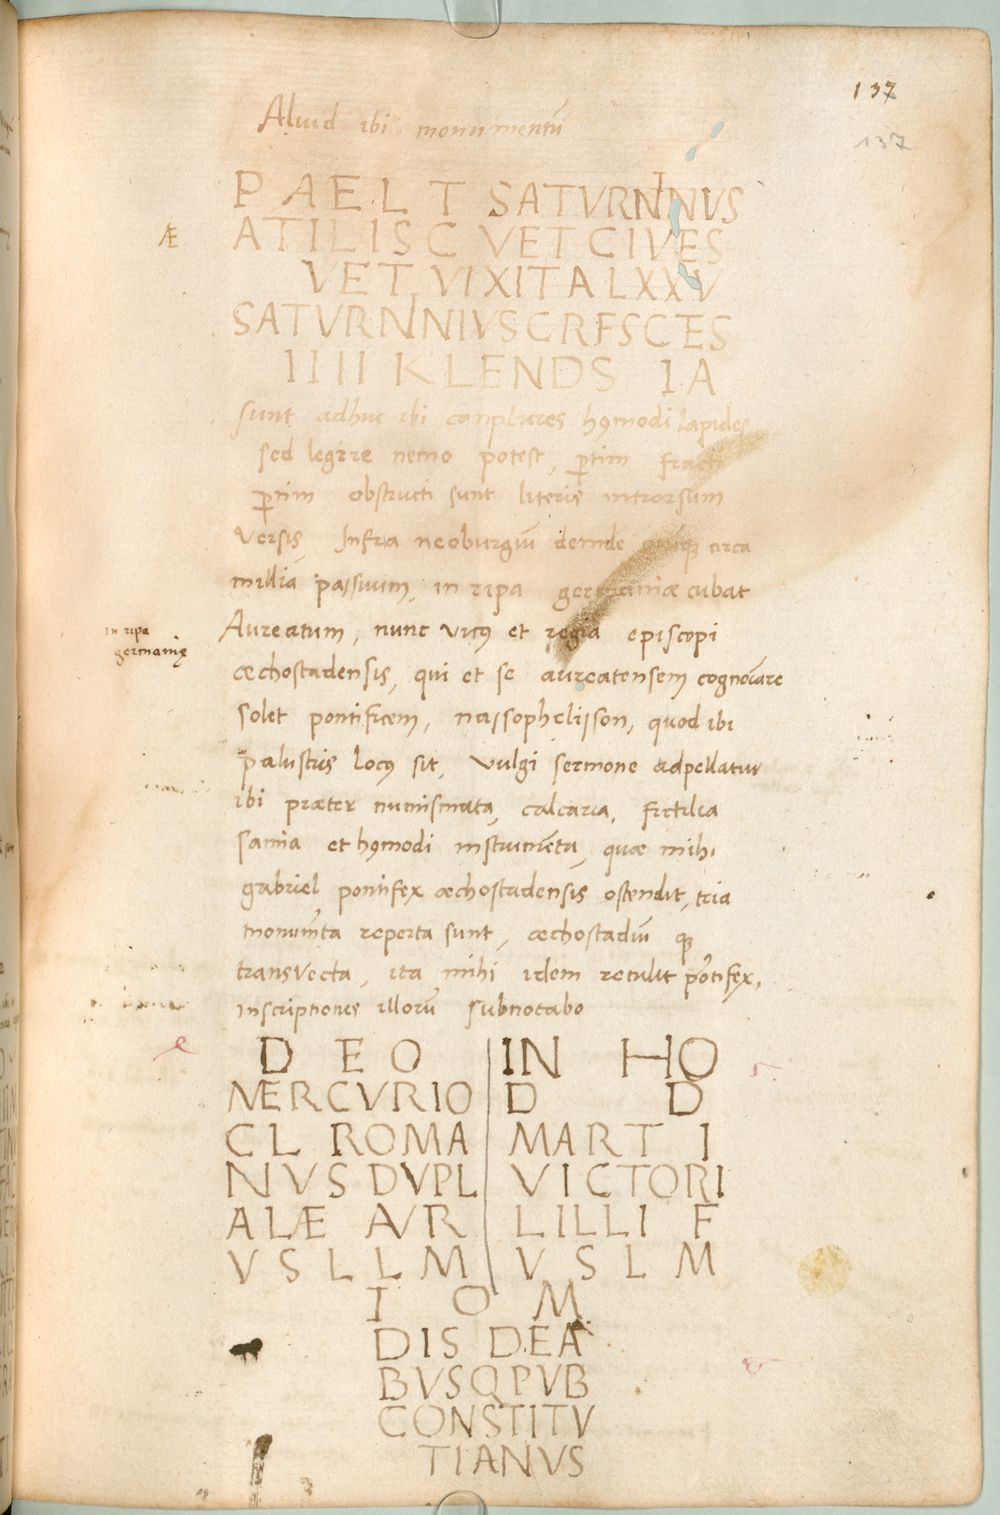 137
137
Aliud ibi monumentū
P AEL T SATVRNINVS
Æ
ATILISC VET CIVES
VET VIXIT A LXXV
SATVRNNIVSCRFSCES
IIII KLENDS IA
sunt adhuc ibi conplures hꝰmodi lapides
sed legere nemo potest, ꝑtim fracti
ꝑtim obstructi sunt literis introrsum
versis, Infra neoburgiū deinde circa
millia passuum, in ripa germaniæ cubat
in ripa
germanię
Aureatum, nunc vicꝰ et regia episcopi
æchostadensis, qui et se aureatensem cognoīare
solet pontificem, nassophelisson, quod ibi
palustris locꝰ sit, vulgi sermone adpellatur
ibi præter numismata, calcaria, fictilia
samia et hꝰmodi instrumēta, quæ mihi
gabriel pontifex æchostadensis ostendit, tria
monumēta reperta sunt, æchostadiū qꝫ
transvecta, ita mihi idem retulit pōtifex,
inscriptiones illorū subnotabo
DEO | IN HO
MERCVRIO | D D
CL ROMA | MART I
NVS DVPL | VICTORI
ALÆ AVR | LILLI F
V S L L M | V S L M
I O M
DIS DEA
BVSQ PVB
CONSTITV
TIANVS